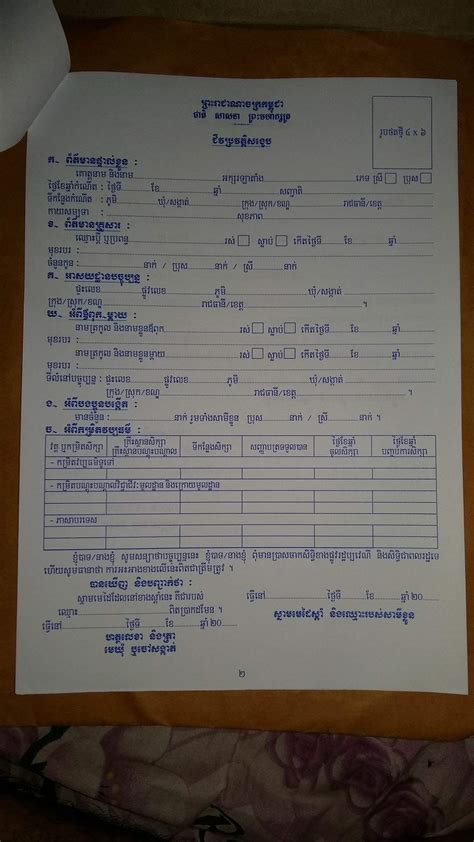 ព្រះរាជាណាចក្រកម្ពុជា
ជាតិ សាសនា ព្រះមហាក្សត្រ
រូបថតថ្មី ៤ x ៦
ជីវប្រវត្តិសង្ខេប
ក- ព័ត៌មានផ្ទាល់ខ្លួន :
គោត្តនាម និងនាម អក្សរឡាតាំង ភេទ ស្រី ប្រុស
ថ្ងៃខែឆ្នាំកំណើត : ថ្ងៃទី ខែ ឆ្នាំ សញ្ជាតិ
ទីកន្លែងកំណើត : ភូមិ ឃុំ/សង្កាត់ ក្រុង/ស្រុក/ខណ្ឌ រាជធានី/ខេត្ត
កាយសម្បទា : សុខភាព
ខ- ព័ត៌មានគ្រួសារ :
ឈ្មោះប្តី ឬប្រពន្ធ រស់ ស្លាប់ កើតថ្ងៃទី ខែ ឆ្នាំ
មុខរបរ :
ចំនួនកូន : នាក់ / ប្រុស នាក់ / ស្រី នាក់
គ- អាសយដ្ឋានបច្ចុប្បន្ន :
ផ្ទះលេខ ផ្លូវលេខ ភូមិ ឃុំ/សង្កាត់
ក្រុង/ស្រុក/ខណ្ឌ រាជធានី/ខេត្ត ។
ឃ- អំពីឪពុក-ម្តាយ :
នាមត្រកូល និងនាមខ្លួនឪពុក រស់ ស្លាប់ កើតថ្ងៃទី ខែ ឆ្នាំ
មុខរបរ :
នាមត្រកូល និងនាមខ្លួនម្តាយ រស់ ស្លាប់ កើតថ្ងៃទី ខែ ឆ្នាំ
មុខរបរ :
ទីលំនៅបច្ចុប្បន្ន : ផ្ទះលេខ ផ្លូវលេខ ភូមិ ឃុំ/សង្កាត់
ក្រុង/ស្រុក/ខណ្ឌ រាជធានី/ខេត្ត ។
ង- អំពីបងប្អូនបង្កើត :
មានចំនួន : នាក់ រួមទាំងសាមីខ្លួន ប្រុស នាក់ / ស្រី នាក់ ។
ច- អំពីកម្រិតវប្បធម៌ :
វគ្គ ឬកម្រិតសិក្សា គ្រឹះស្ថានសិក្សា គ្រឹះស្ថានបណ្តុះបណ្តាល ទីកន្លែងសិក្សា សញ្ញាបត្រទទួលបាន ថ្ងៃខែឆ្នាំ ចូលសិក្សា ថ្ងៃខែឆ្នាំ បញ្ចប់ការសិក្សា
- កម្រិតវប្បធម៌ទូទៅ
- កម្រិតបណ្តុះបណ្តាលវិជ្ជាជីវៈមូលដ្ឋាន និងក្រោយមូលដ្ឋាន
- ភាសាបរទេស
ខ្ញុំបាទ/នាងខ្ញុំ សូមសន្យាថាបច្ចុប្បន្ននេះ ខ្ញុំបាទ/នាងខ្ញុំ ពុំមានប្រាសចាកសិទ្ធិខាងផ្លូវរដ្ឋប្បវេណី និងសិទ្ធិជាពលរដ្ឋទេ
ហើយសូមធានាថា ការអះអាងខាងលើនេះពិតជាត្រឹមត្រូវ ។
បានឃើញ និងបញ្ជាក់ថា :
ស្នាមមេដៃដែលនៅខាងស្តាំនេះ គឺជារបស់
ឈ្មោះ ពិតប្រាកដមែន ។
ធ្វើនៅ ថ្ងៃទី ខែ ឆ្នាំ 20
ធ្វើនៅ ថ្ងៃទី ខែ ឆ្នាំ 20
ស្នាមមេដៃស្តាំ និងឈ្មោះរបស់សាមីខ្លួន
ហត្ថលេខា និងត្រា
មេឃុំ ឬចៅសង្កាត់
២